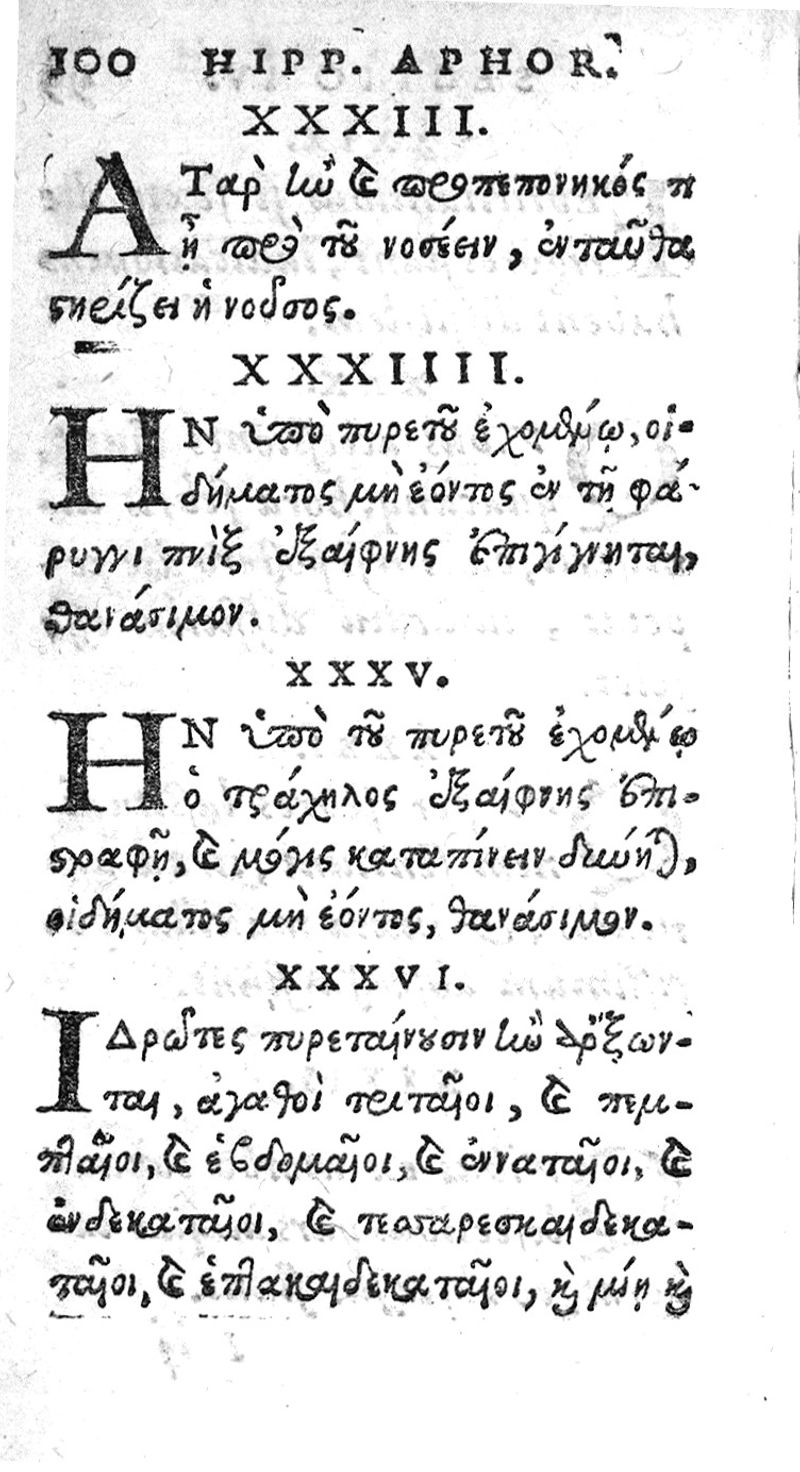 100 HIPP. APHOR.
XXXIII.
ΑΤαρ ἢν καὶ προπεπονηκός τι
ᾖ πρὸ τοῦ νοσέειν, ἐνταῦθα
στηρίζει ἡ νοῦσος.
XXXIIII.
ΗΝ ὑπὸ πυρετοῦ ἐχομένῳ, οἰ-
δήματος μὴ ἐόντος ἐν τῇ φά-
ρυγγι πνὶξ ἐξαίφνης ἐπιγίγνηται,
θανάσιμον.
XXXV.
ΗΝ ὑπὸ τοῦ πυρετοῦ ἐχομένῳ
ὁ τράχηλος ἐξαίφνης ἐπι-
στραφῇ, καὶ μόγις καταπίνειν δύνηται,
οἰδήματος μὴ ἐόντος, θανάσιμον.
XXXVI.
ΙΔρῶτες πυρεταίνουσιν ἢν ἄρξων-
ται, ἀγαθοὶ τριταῖοι, καὶ πεμ-
πταῖοι, καὶ ἑβδομαῖοι, καὶ ἐνναταῖοι, καὶ
ἑνδεκαταῖοι, καὶ τεσσαρεσκαιδεκα-
ταῖοι, καὶ ἑπτακαιδεκαταῖοι, καὶ μίῃ καὶ